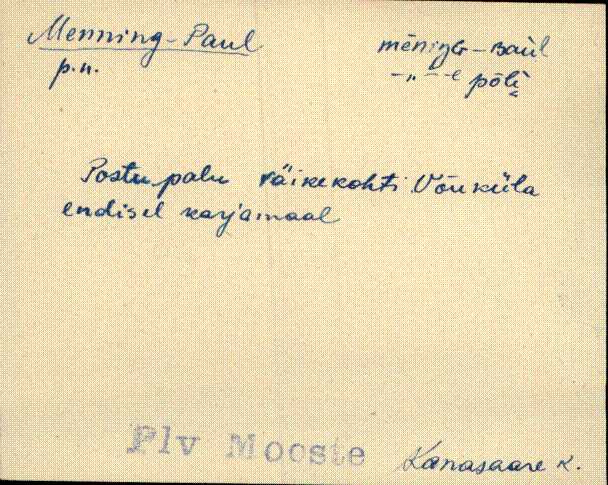 Menning-Paul mēninɢ-ʙaùl
p.n. -„- -e pȭlì
Postu palu väikekohti Võuküla
endisel karjamaal
Plv Mooste Kanasaare k.